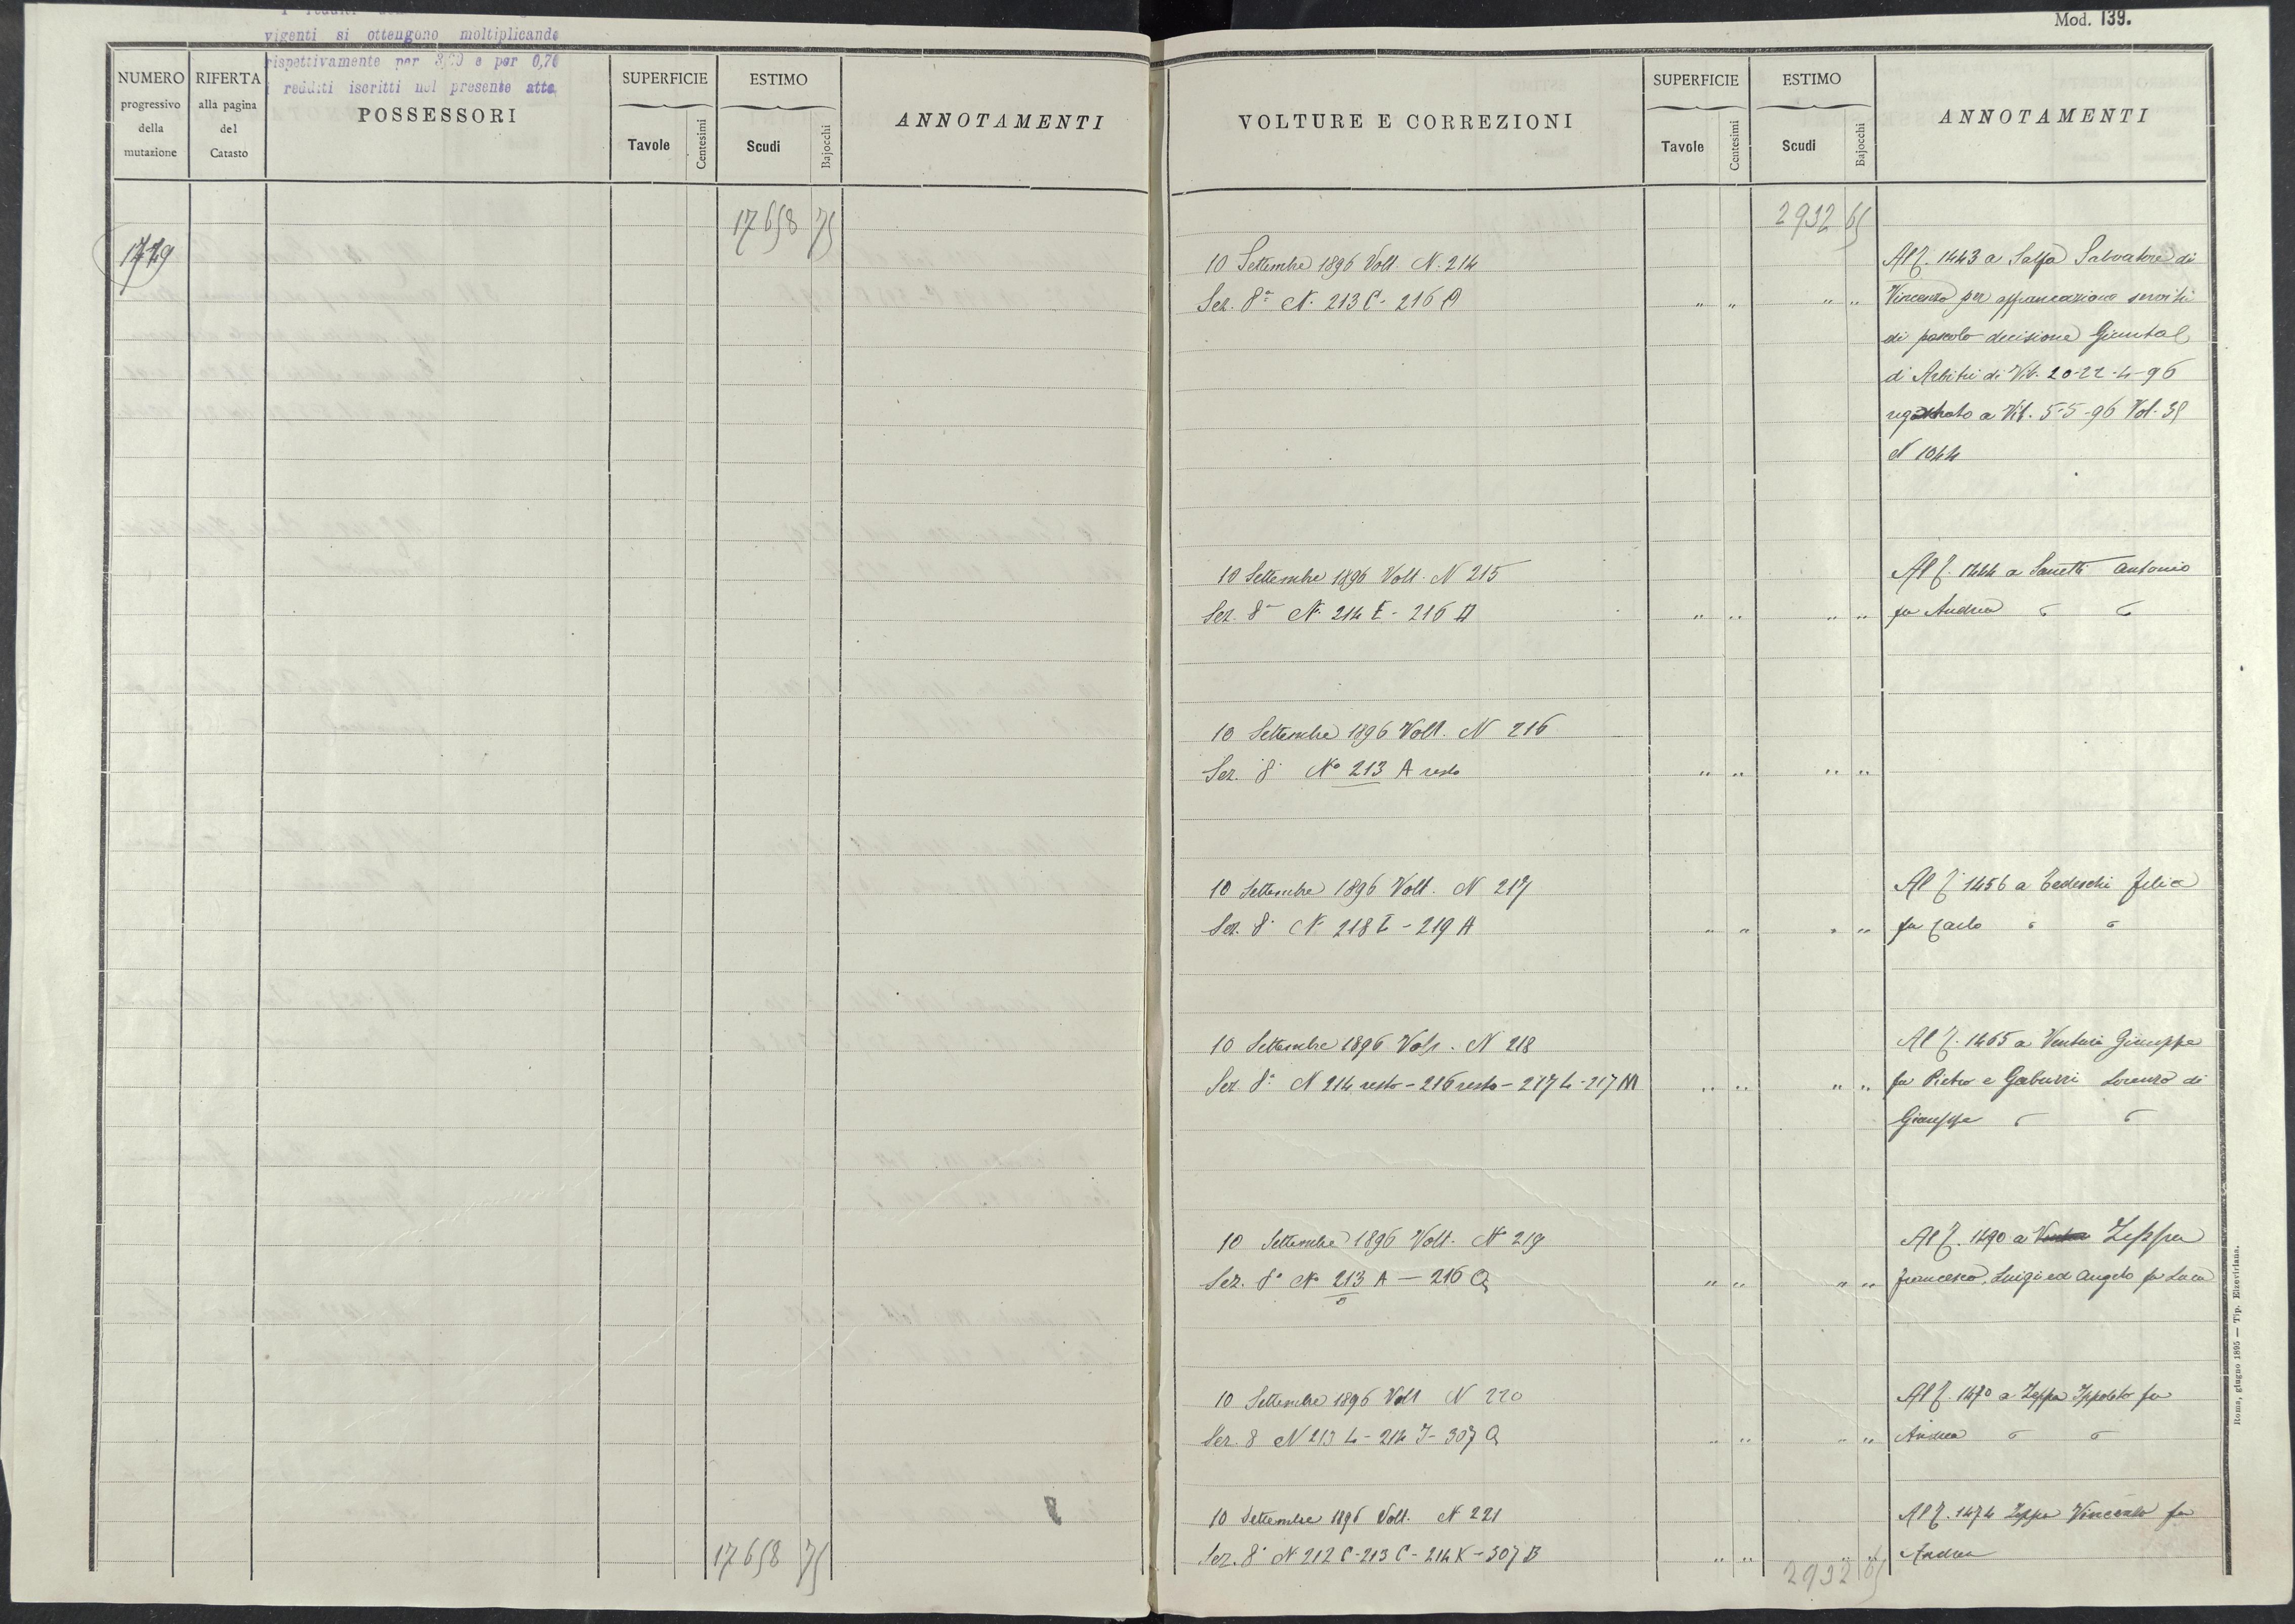 Mod. 139.
vigenti si ottengono moltiplicando
rispettivamente per 3,20 e per 0,70
i redditi iscritti nel presente atto
NUMERO progressivo della mutazione
RIFERTA alla pagina del Catasto
POSSESSORI
SUPERFICIE
Tavole Centesimi
ESTIMO
Scudi Bajocchi
ANNOTAMENTI
VOLTURE E CORREZIONI
SUPERFICIE
Tavole Centesimi
ESTIMO
Scudi Bajocchi
ANNOTAMENTI
17658 75
2932 65
10 Settembre 1896 Volt. N. 214
Al f. 1443 a Salfa Salvatore di
Sez. 8ª N. 213 C - 216 " " " " Vincenzo per affrancazione servitù
di pascolo decisione Giunta
d'Arbitri di Vit. 20-22-4-96
a Vit. 5-5-96 Vol. 38
N 1044
10 Settembre 1896 Volt. N 215
Al f. a Sanetti Antonio
Sez. 8ª N. 214 E - 216 " " " " fu Andrea
10 Settembre 1896 Volt. N 216
Sez. 8ª Nº 213 A resto " " " "
10 Settembre 1896 Volt. N 217
Al f. 1456 a Tedeschi Felice
Sez. 8ª N 218 - 219 A " " " " fu Carlo
10 Settembre 1896 Volt. N 218
Al f. 1465 a Venturi Giuseppe
Sez. 8ª N 214 resto - 216 resto - 217 L - 217 M " " " " fu Pietro e Gaburri Lorenzo di
Giuseppe
10 Settembre 1896 Volt. Nº 219
Al f. 1490 a Zeppa
Sez. 8ª Nº 213 A - 216 Q " " " " Francesco, Luigi ed Angelo fu Luca
10 Settembre 1896 Volt N 220
Al f. 1470 a Zeppa Ippolito fu
Sez. 8 N 213 L - 214 J - 307 Q " " " " Andrea
10 Settembre 1896 Volt. N 221
Al f. 1474 Zeppa Vincenzo fu
Sez. 8ª N 212 C - 213 C - 214 K - 307 B " " " " Andrea
17658 75
2932 65
Roma, giugno 1895 — Tip. Elzeviriana.